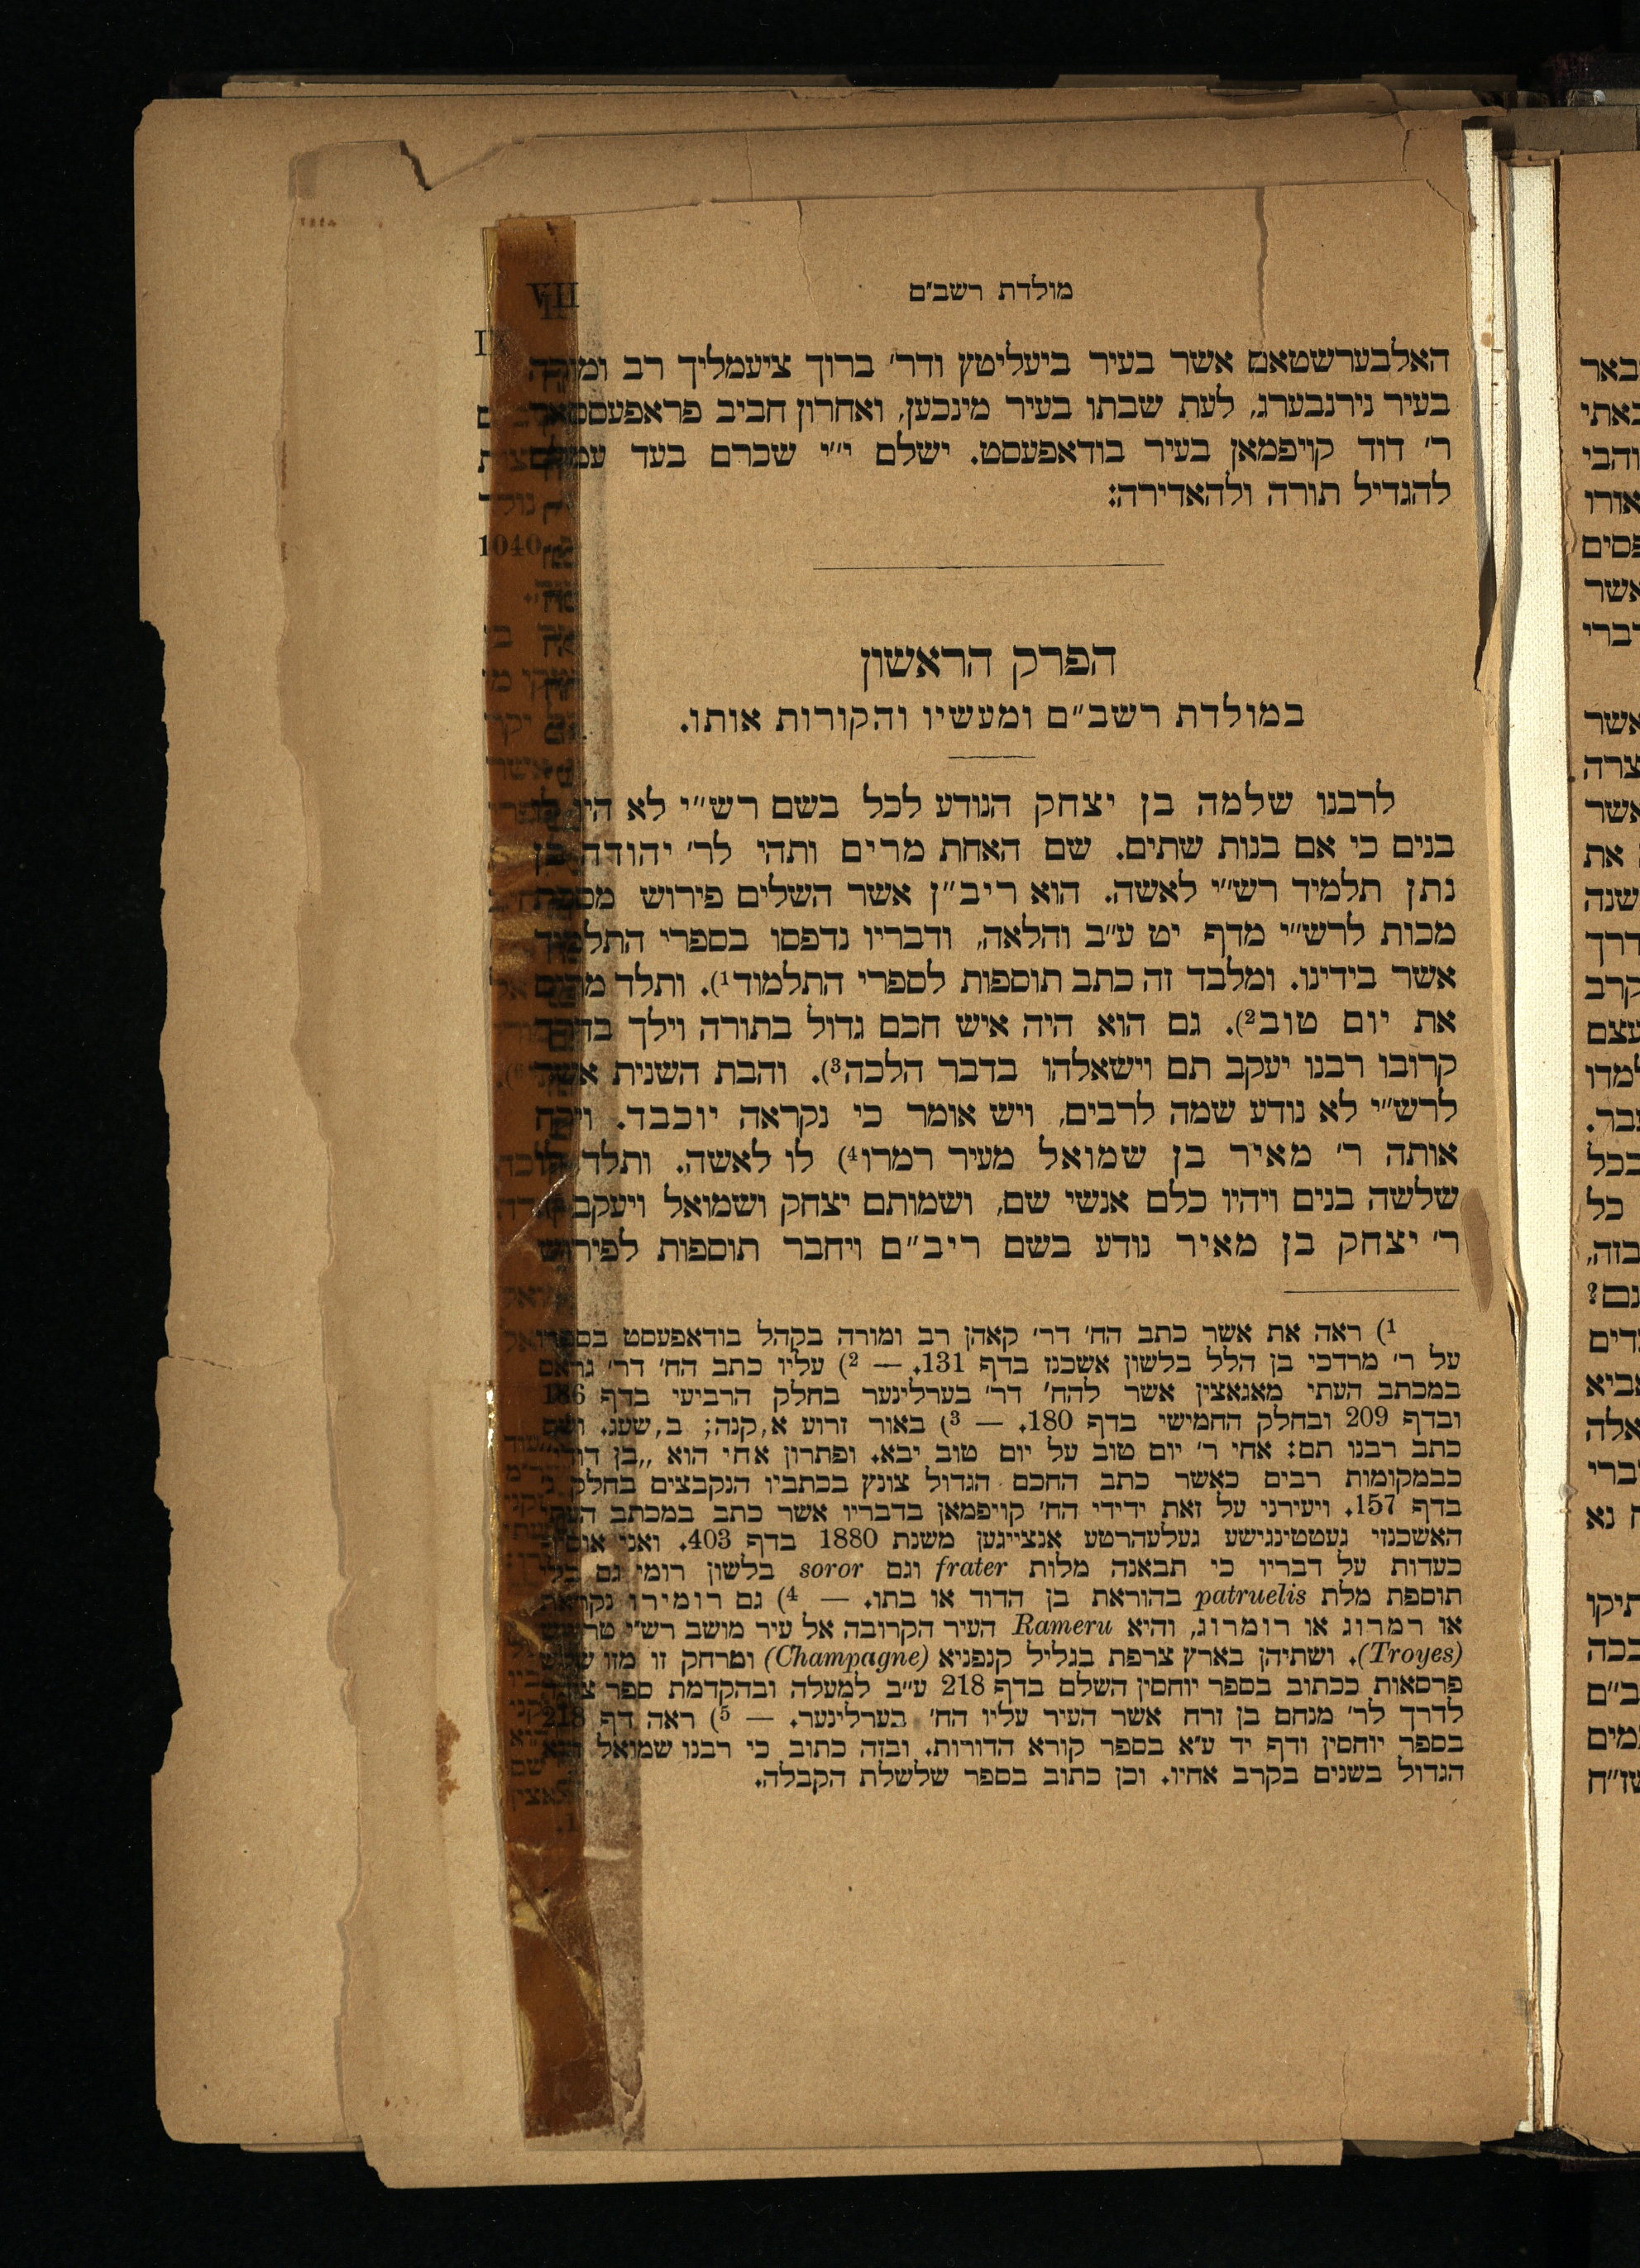 מולדת רשב״ם
VII
האלבערשטאם אשר בעיר ביעליטץ ודר׳ ברוך ציעמליך רב ומורה
בעיר נירנבערג, לעת שבתו בעיר מינכען, ואחרון חביב פראפעססאר
ר׳ דוד קויפמאן בעיר בודאפעסט. ישלם י״י שכרם בעד עמלם
להגדיל תורה ולהאדירה:
הפרק הראשון
במולדת רשב״ם ומעשיו והקורות אותו.
לרבנו שלמה בן יצחק הנודע לכל בשם רש״י לא היו
בנים כי אם בנות שתים. שם האחת מרים ותהי לר׳ יהודה בן
נתן תלמיד רש״י לאשה. הוא ריב״ן אשר השלים פירוש מסכת
מכות לרש״י מדף יט ע״ב והלאה, ודבריו נדפסו בספרי התלמוד
אשר בידינו. ומלבד זה כתב תוספות לספרי התלמוד¹). ותלד מרים
את יום טוב²). גם הוא היה איש חכם גדול בתורה וילך בדרך
קרובו רבנו יעקב תם וישאלהו בדבר הלכה³). והבת השנית אשר
לרש״י לא נודע שמה לרבים, ויש אומר כי נקראה יוכבד. ויקח
אותה ר׳ מאיר בן שמואל מעיר רמרו⁴) לו לאשה. ותלד
שלשה בנים ויהיו כלם אנשי שם, ושמותם יצחק ושמואל ויעקב
ר׳ יצחק בן מאיר נודע בשם ריב״ם ויחבר תוספות לפירוש
¹) ראה את אשר כתב הח׳ דר׳ קאהן רב ומורה בקהל בודאפעסט בספרו
על ר׳ מרדכי בן הלל בלשון אשכנז בדף 131. — ²) עליו כתב הח׳ דר׳ גראס
במכתב העתי מאגאצין אשר להח׳ דר׳ בערלינער בחלק הרביעי בדף 186
ובדף 209 ובחלק החמישי בדף 180. — ³) באור זרוע א,קנה; ב,שעג. ושם
כתב רבנו תם: אחי ר׳ יום טוב על יום טוב יבא. ופתרון אחי הוא „בן דוד
כבמקומות רבים כאשר כתב החכם הגדול צונץ בכתביו הנקבצים בחלק ג
בדף 157. ויעירני על זאת ידידי הח׳ קויפמאן בדבריו אשר כתב במכתב העתי
האשכנזי געטטינגישע געלעהרטע אנצייגען משנת 1880 בדף 403. ואני אוסיף
כעדות על דבריו כי תבאנה מלות frater וגם soror בלשון רומי גם בלי
תוספת מלת patruelis בהוראת בן הדוד או בתו. — ⁴) גם רומירו נקראת
או רמרוג או רומרוג, והיא Rameru העיר הקרובה אל עיר מושב רש״י טרויש
(Troyes). ושתיהן בארץ צרפת בגליל קנפניא (Champagne) ומרחק זו מזו שלש
פרסאות ככתוב בספר יוחסין השלם בדף 218 ע״ב למעלה ובהקדמת ספר צידה
לדרך לר׳ מנחם בן זרח אשר העיר עליו הח׳ בערלינער. — ⁵) ראה דף 218
בספר יוחסין ודף יד ע״א בספר קורא הדורות. ובזה כתוב כי רבנו שמואל הוא
הגדול בשנים בקרב אחיו. וכן כתוב בספר שלשלת הקבלה.